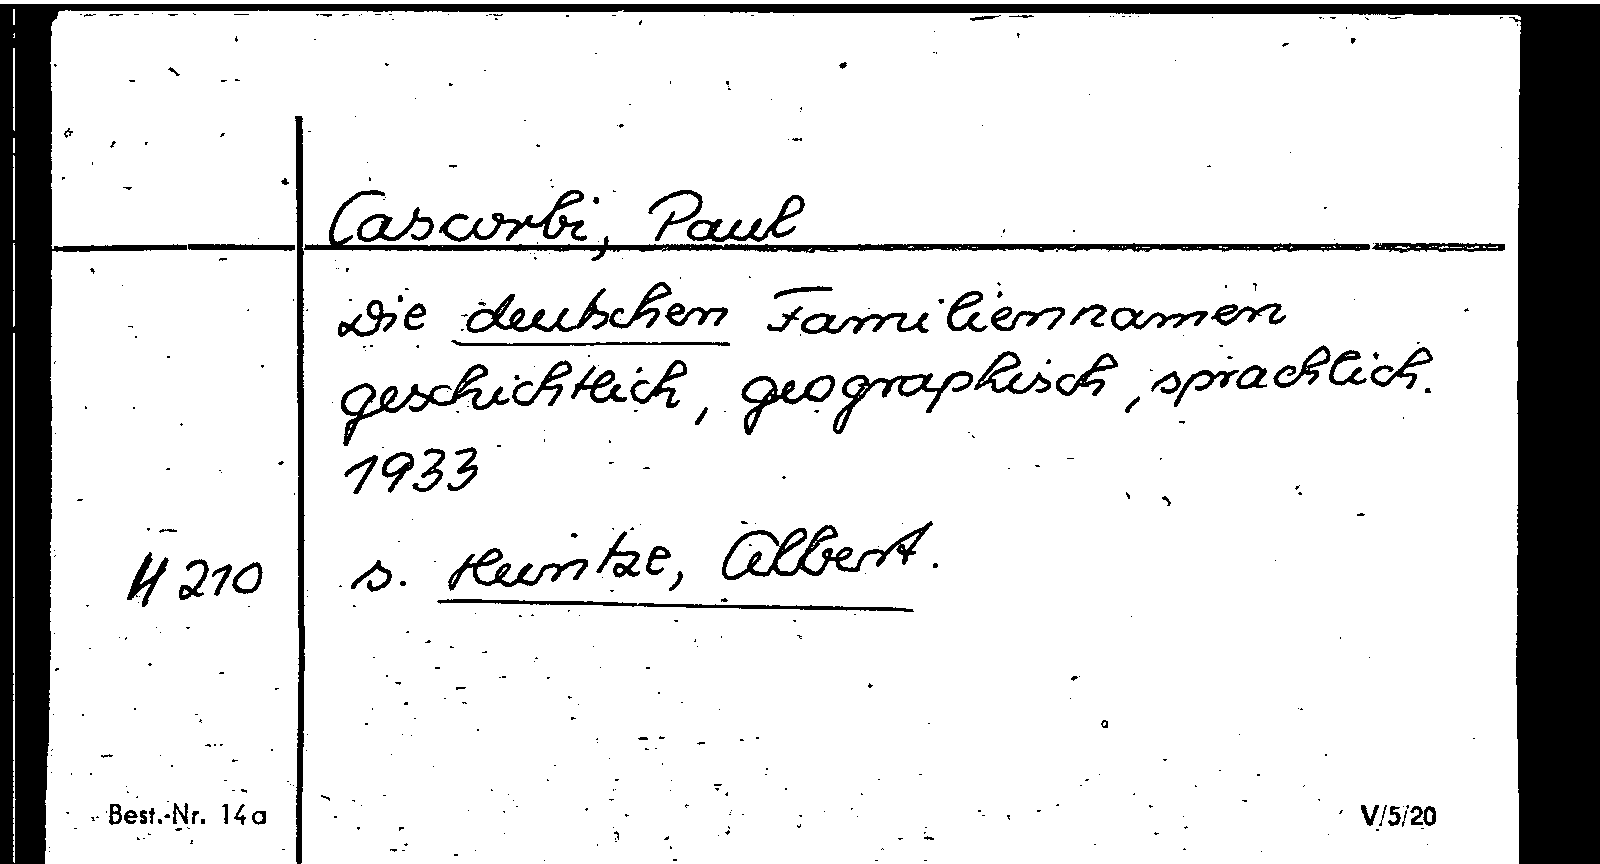 Cascorbi, Paul
Die deutschen Familiennamen
geschichtlich, geographisch, sprachlich.
1933
H 210 s. Heintze, Albert.
Best.-Nr. 14a V/5/20